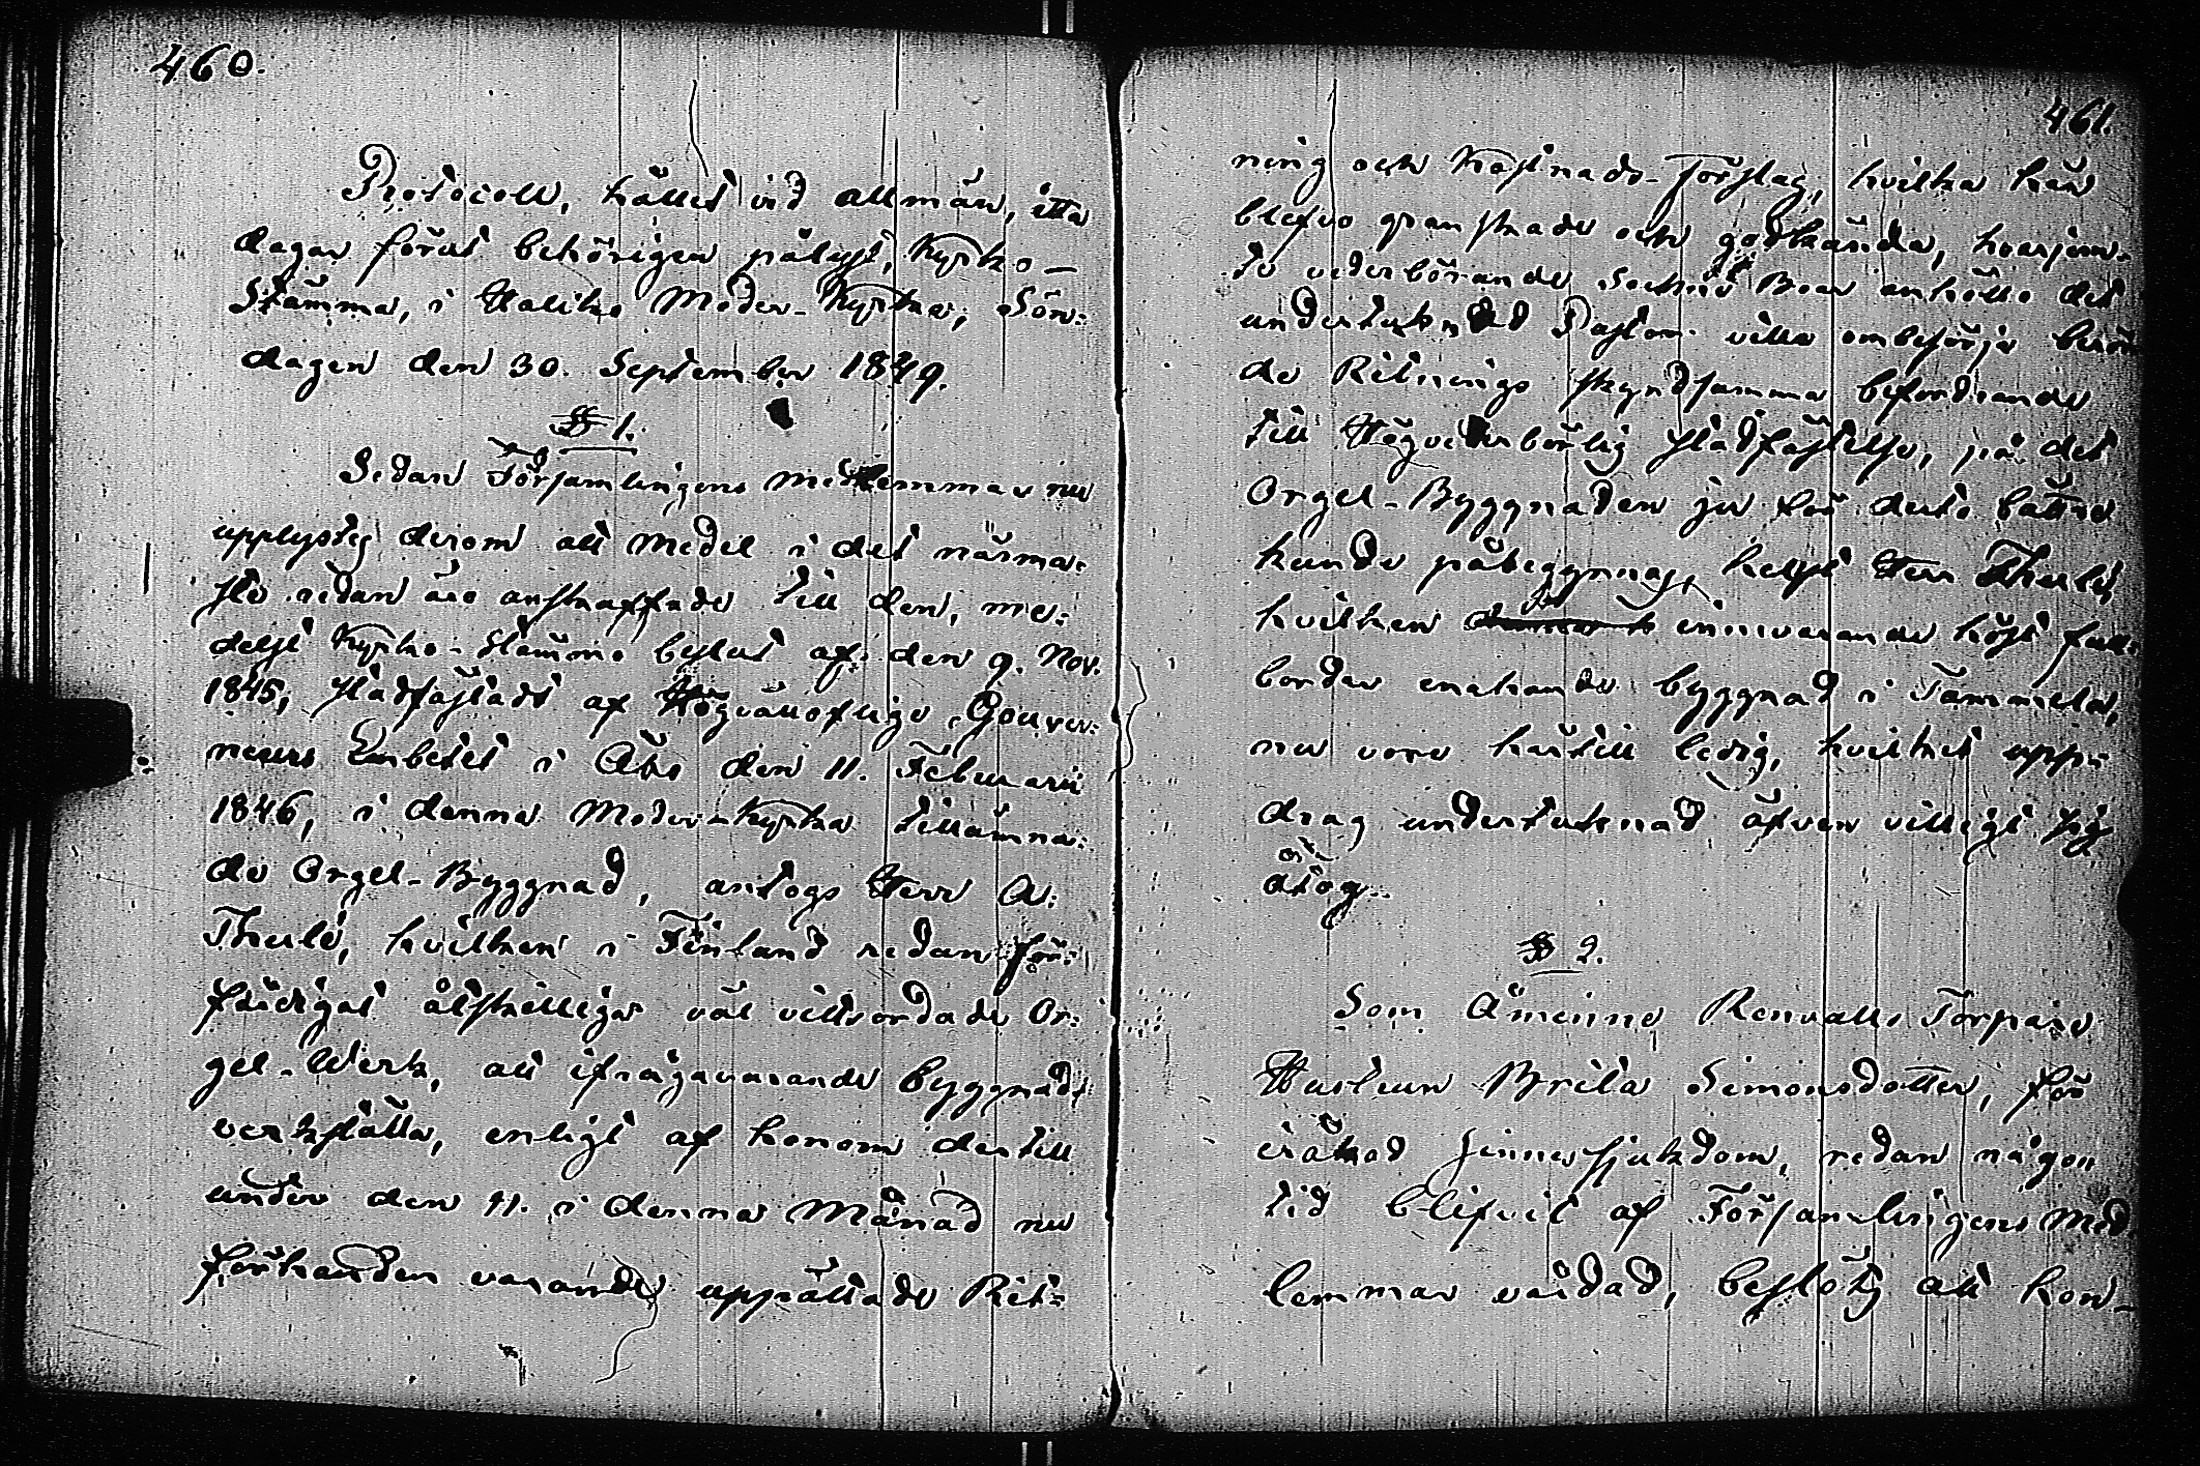 460.
Protocoll, hållet vid allmän, åtta
dagar förut behörigen pålyst, Kyrko-
Stämma, i Haliko Moder-Kyrka, Sön:
dagen den 30. September 1849.
§ 1.
Sedan Församlingens medlemmar nu
upplysts derom att medel i det närma:
ste redan äro anskaffade till den, me:
delst Kyrko-Stämmo beslut af den 9. Nov.
1845, stadfästadt af Högvällofliga Gouver:
neurs Embetet i Åbo den 11. Februarii
1846, i denna Moder-kyrka tillämna:
de Orgel-Byggnad, antogs Herr A:
Thulé, hvilken i Finland redan för:
färdigat åtskilliga väl vitsordade Or:
gel-Werk, att ifrågavarande byggnad
verkställa, enligt af honom dertill
under den 11. i denna Månad nu
förhanden varande, upprättade Rit:
461.
ning och Kostnads-Förslag, hvilka här
blefvo granskade och godkända, hvarjem:
te vederbörande Sockne Boar anhöllo det
undertecknad Pastor ville ombesörja berör
de Ritnings skyndsamma befordrande
till Högvederbörlig stadfästelse, på det
Orgel-Byggnaden ju för desto bättre
kunde påbegynnas, helst Herr Thulé,
hvilken innevarande höst full:
bordar enahanda byggnad i Tammela,
nu vore härtill ledig, hvilket upp:
drag undertecknad äfven villigt sig
åtog.
§ 2.
Som Äminne Renvalls Torpare
Hustrun Brita Simonsdotter, för
iråkad sinnessjukdom, redan någon
tid blifvit af Församlingens Med
lemmar vårdad, beslöts att hon-